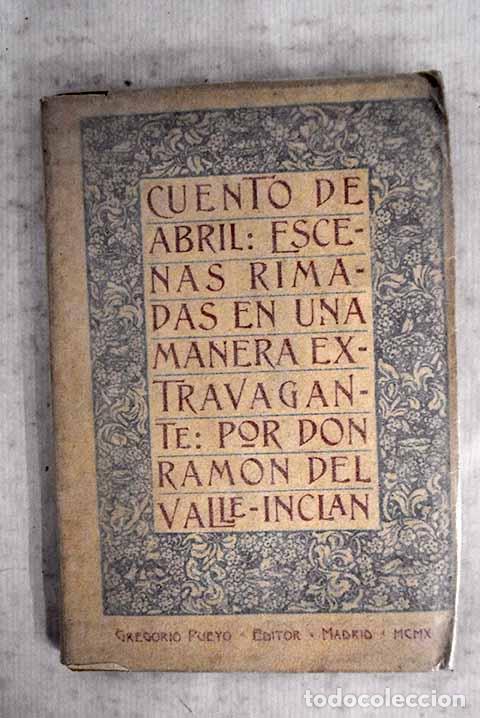 CUENTO DE
ABRIL: ESCE-
NAS RIMA-
DAS EN UNA
MANERA EX-
TRAVAGAN-
TE: POR DON
RAMON DEL
VALLE-INCLAN
GREGORIO PUEYO · EDITOR · MADRID · MCMX
todocoleccion